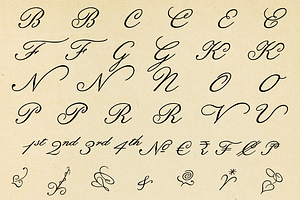 B B C C E E
F F G G K K
N N N O O
P P R R V U
1st 2nd 3rd 4th № € ₹ F ₡ P
&